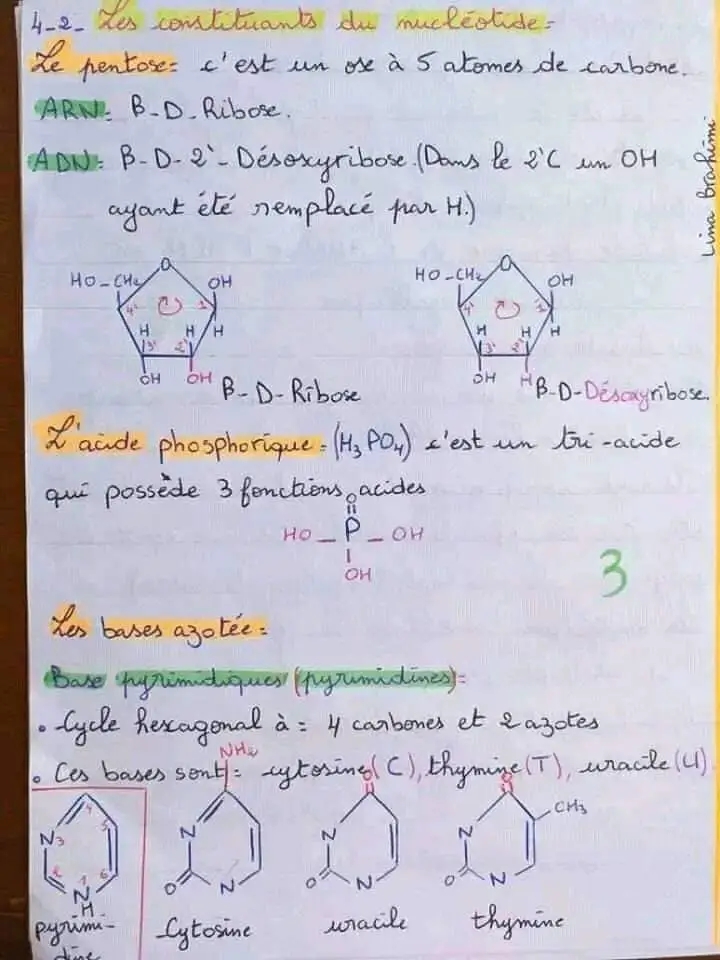 4-2- Les constituants du nucléotide=
Le pentose= c'est un ose à 5 atomes de carbone.
ARN= B-D-Ribose.
ADN= B-D-2'-Désoxyribose.(Dans le 2'C un OH
ayant été remplacé par H.)
Lina Brahimi
HO-CH2 O OH
4' 1'
H H H
3' 2'
OH OH
B-D-Ribose
HO-CH2 O OH
4' 1'
H H H
3' 2'
OH H
B-D-Désoxyribose.
L'acide phosphorique=(H3PO4) c'est un tri-acide
qui possède 3 fonctions acides
O
HO - P - OH
OH
3
Les bases azotée=
Base pyrimidiques (pyrimidines)=
• Cycle hexagonal à= 4 carbones et 2 azotes
• Ces bases sont= cytosine(C), thymine(T), uracile(U)
4
N3 5
2 6
1
N
H
pyrimi-
dine
NH2
N
O N
Cytosine
O
N
O N
uracile
O
CH3
N
O N
thymine